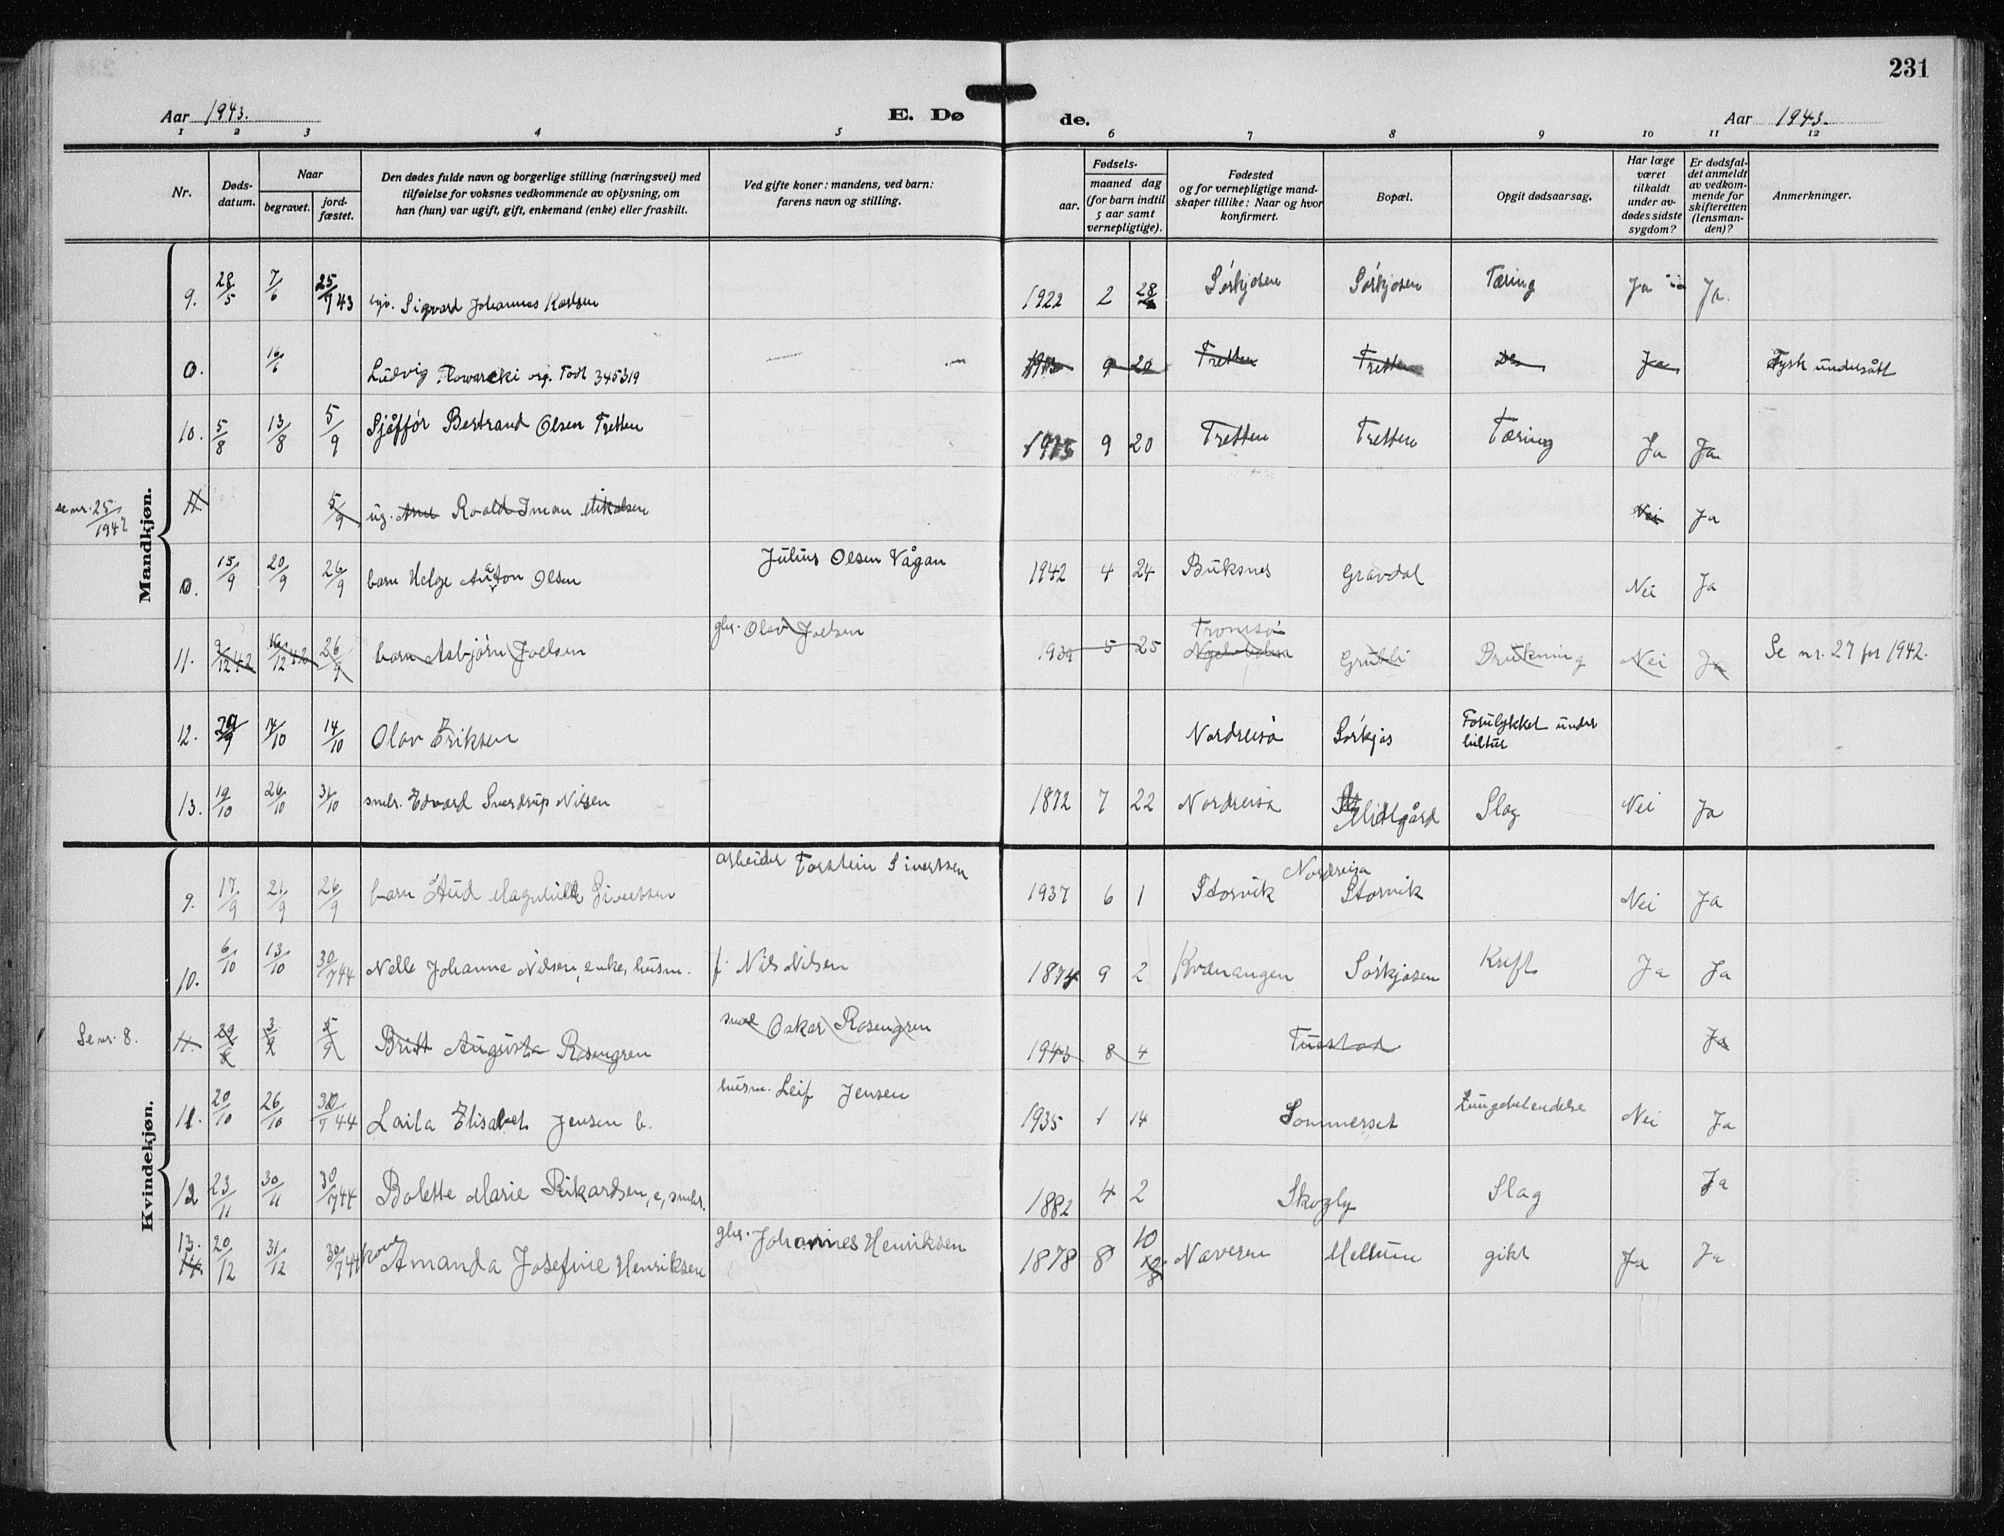 231
Aar 1943.
E. Døde.
Aar 1943.
1 2 3 4 5 6 7 8 9 10 11 12
Nr.
Døds-
datum.
Naar
begravet.
jord-
fæstet.
Den dødes fulde navn og borgerlige stilling (næringsvei) med
tilføielse for voksnes vedkommende av oplysning, om
han (hun) var ugift, gift, enkemand (enke) eller fraskilt.
Ved gifte koner: mandens, ved barn:
farens navn og stilling.
Fødsels-
aar.
maaned dag
(for barn indtil
5 aar samt
vernepligtige).
Fødested
og for vernepligtige mand-
skaper tillike: Naar og hvor
konfirmert.
Bopæl.
Opgit dødsaarsag.
Har læge
været
tilkaldt
under av-
dødes sidste
sygdom?
Er dødsfal-
det anmeldt
av vedkom-
mende for
skifteretten
(lensman-
den)?
Anmerkninger.
Mandkjøn.
9. 28/5 7/6 25/7 43 Sigvard Johannes Karlsen 1922 2 28 Sørkjosen Sørkjosen Tæring Ja Ja.
0. 16/6 Ludvig org. Todt 345319 9 20 Tretten Tretten Ja Tysk undersått
10. 5/8 13/8 5/9 Sjåffør Bertrand Olsen Tretten 1915 9 20 Tretten Tretten Tæring Ja Ja
se nr. 25/1942 11 5/9 ug. Roald Iman Mikalsen Nei Ja
0. 15/9 20/9 26/9 barn Helge Anton Olsen Julius Olsen Vågan 1942 4 24 Buksnes Gravdal Nei Ja
11. 9/12 42 16/12 42 26/9 barn Asbjørn Joelsen gbr. Olav Joelsen 1939 5 25 Tromsø Grubli Drukning Nei Ja Se nr. 27 for 1942.
12. 29/9 14/10 14/10 Olav Eriksen Nordreisa Sørkjos Forulykket under biltur
13. 19/10 26/10 31/10 smbr. Edvard Sverdrup Nilsen 1872 7 22 Nordreisa Midtgård Slag Nei Ja
Kvindekjøn.
9. 17/9 21/9 26/9 barn Aud Magnhild Sivertsen arbeider Torstein Sivertsen 1937 6 1 Storvik Nordreisa Storvik Nei Ja
10. 6/10 13/10 30/7 44 Nelle Johanne Nilsen, enke, husm. f. Nils Nilsen 1874 9 2 Kvænangen Sørkjosen Kreft Ja Ja
Se nr. 8. 11. 29/8 3/9 5/9 Britt Augusta Rosengren Oskar Rosengren 1943 8 4 Ja
11. 20/10 26/10 30/7 44 Laila Elisabet Jensen b. husm. Leif Jensen 1935 1 14 Sommerset Lungebetendelse Nei Ja
12 23/11 30/11 30/7 44 Bolette Marie Rikardsen, e, smbr. 1882 4 2 Skogly Slag Ja
13. 14. 20/12 31/12 30/7 44 kone Amanda Josefine Henriksen gbr. Johannes Henriksen 1878 8 10 Naveren Mellum gikt Ja Ja